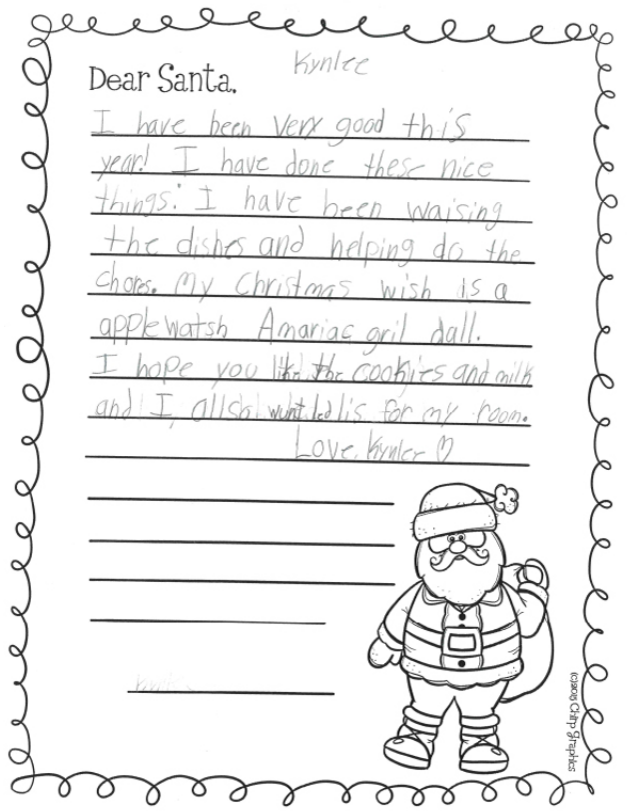 Kynlee
Dear Santa,
I have been very good this
year! I have done these nice
things: I have been waising
the dishes and helping do the
chores. My Christmas wish is a
apple watsh Amariac gril dall.
I hope you like the cookies and milk
and I allso wunt led lis for my room.
Love, Kynlee ♡
(c)2015 Chirp Graphics